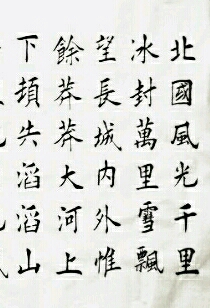 北國風光千里
冰封萬里雪飄
望長城内外惟
餘莽莽大河上
下頓失滔滔山